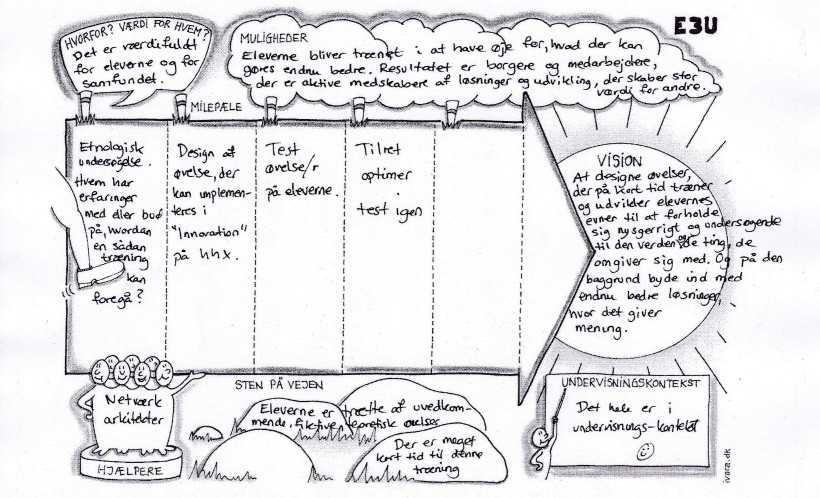 E3U
HVORFOR? VÆRDI FOR HVEM?
Det er værdifuldt
for eleverne og for
samfundet.
MULIGHEDER
Eleverne bliver trænet i at have øje for, hvad der kan
gøres endnu bedre. Resultatet er borgere og medarbejdere,
der er aktive medskabere af løsninger og udvikling, der skaber stor
værdi for andre.
MILEPÆLE
Etnologisk
undersøgelse.
Hvem har
erfaringer
med eller bud
på, hvordan
en sådan
træning
kan
foregå?
Design af
øvelse, der
kan implemen-
teres i
"Innovation"
på hhx.
Test
øvelse/r
på eleverne.
Tilret
optimer
-
test igen
VISION
At designe øvelser,
der på kort tid træner
og udvikler elevernes
evner til at forholde
sig nysgerrigt og undersøgende
til den verden og de ting, de
omgiver sig med. Og på den
baggrund byde ind med
endnu bedre løsninger,
hvor det giver
mening.
Netværk
arkitekter
HJÆLPERE
STEN PÅ VEJEN
Eleverne er trætte af uvedkom-
mende, fiktive, teoretisk øvelser
Der er meget
kort tid til denne
træning
UNDERVISNINGSKONTEKST
Det hele er i
undervisnings-kontekst
ivara.dk